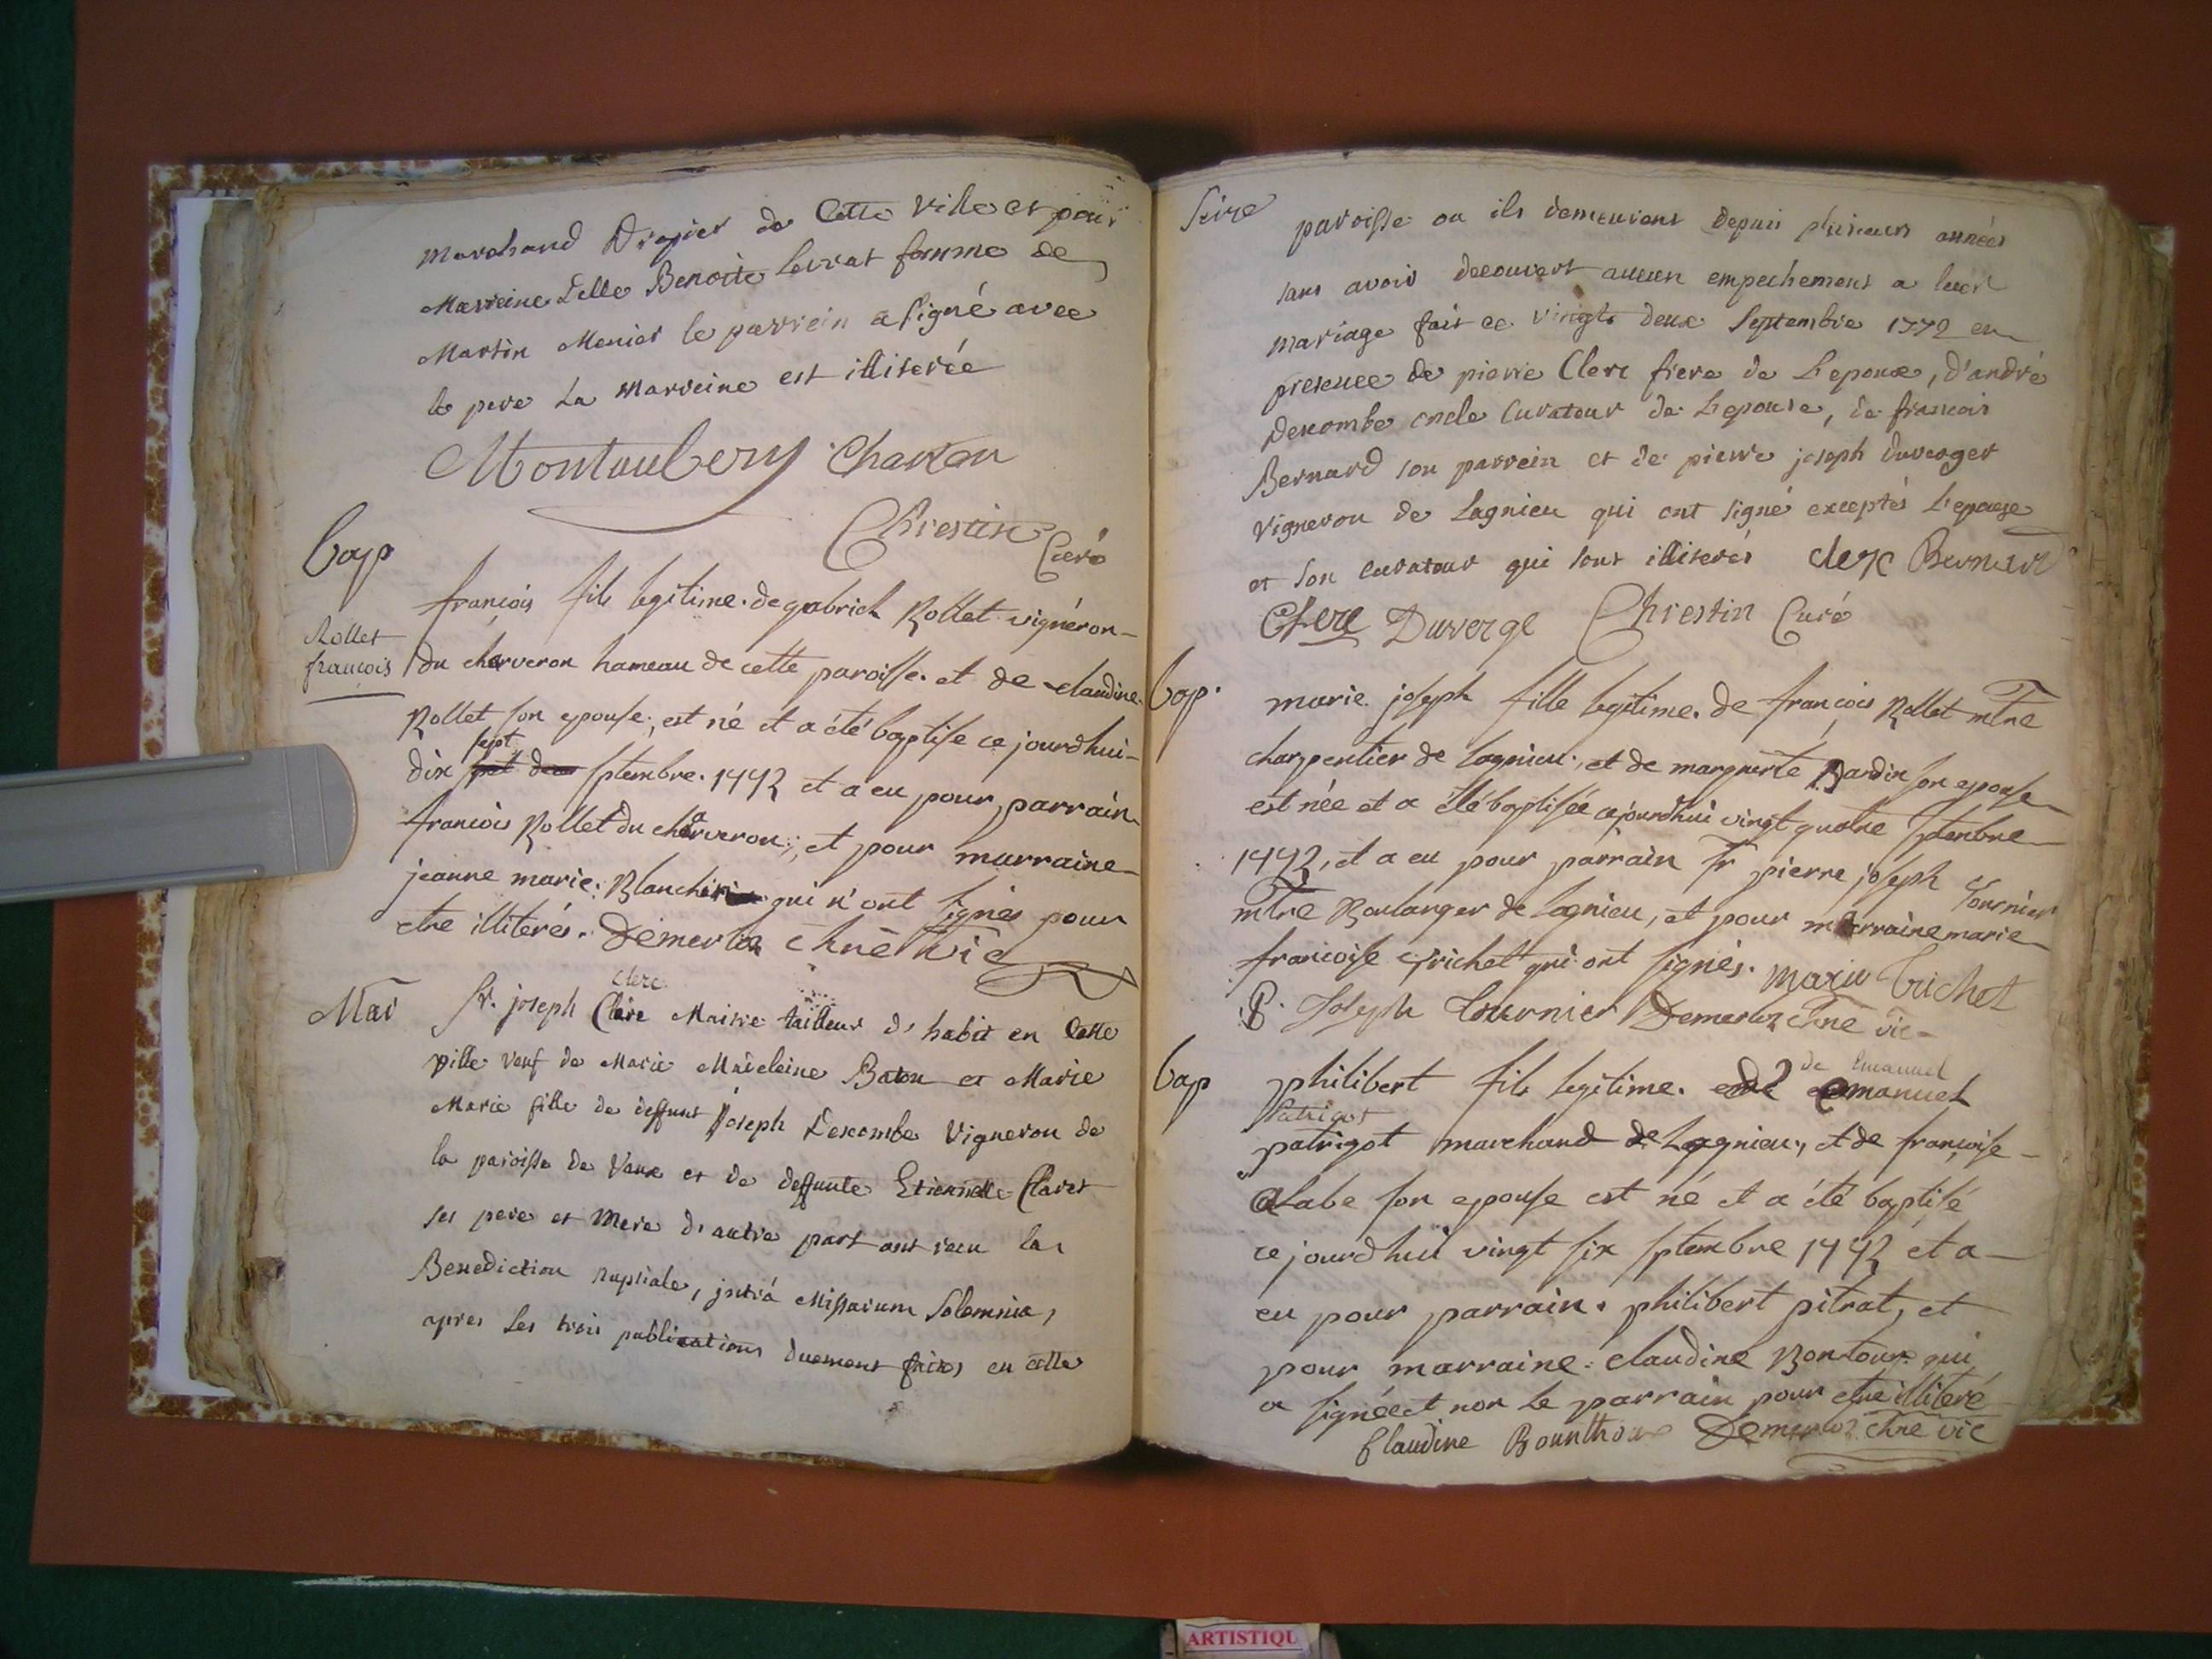 marchand Drapier de Cette Ville et pour
Marreine Delle Benoite Levrat femme de
Martin Menier le parrein a signé avec
le pere La Marreine est illiterée
Montauberry Charon
Chrestin Curé
bap
françois fils legitime de gabriel Rollet vigneron
Rollet
françois
du charveron hameau de cette paroisse et de claudine
Rollet son epouse, est né et a été baptise ce jourdhui
sept
dix septembre 1772 et a eu pour parrain
françois Rollet du charveron, et pour marraine
jeanne marie Blanchin qui n'ont signés pour
etre illiterés. Demerloz chne vic
clerc
Mar Sr. joseph Clere Maitre tailleur d'habit en Cette
ville veuf de Marie Madeleine Baton et Marie
Marie fille de deffunt Joseph Descombe Vigneron de
la paroisse de Vaux et de deffunte Etiennette Claret
ses pere et Mere d'autre part ont recu la
Benediction Nuptiale, intrà Missarum Solemnia,
apres Les trois publications duement faites en cette
Seize
paroisse ou ils demeurent depuis plusieurs années
sans avoir decouvert aucun empechement a leur
mariage fait ce vingt deux Septembre 1772 en
presence de pierre Clerc frere de L'epoux, d'andré
Descombe oncle Curateur de L'epouse, de francois
Bernard son parrein et de pierre joseph Duverger
vigneron de Lagnieu qui ont signé exceptés L'epouse
et son curateur qui sont illiterés clerc Bernard
Clerc Duverge Chrestin Curé
bap. marie joseph fille legitime de françois Rollet mtre
charpentier de lagnieu, et de marguerite Bardin son epouse
est née et a été baptisée cejourdhui vingt quatre septembre
1772, et a eu pour parrain Sr pierre joseph Tournier
mtre Boulanger de lagnieu, et pour marraine marie
francoise Trichet qui ont signés. marie trichet
P. Joseph tournier Demerloz chne vic
de Emanuel
bap philibert fils legitime de emanuel
Patrigot
patrigot marchand de Lagnieu, et de françoise
Labe son epouse est né et a été baptisé
ce jourdhui vingt six septembre 1772 et a
eu pour parrain philibert pitrat, et
pour marraine claudine Bontoux qui
a signée et non le parrain pour etre illiteré
Claudine Bounthoux Demerloz chne vic
ARTISTIQU